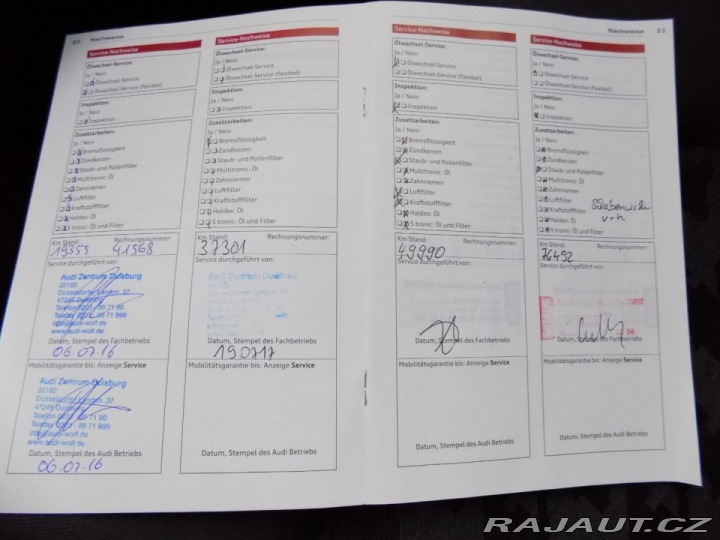 20 Nachweise
Service-Nachweise
Ölwechsel-Service:
Ja / Nein
Ölwechsel-Service
Ölwechsel-Service (flexibel)
Inspektion:
Ja / Nein
Inspektion
Zusatzarbeiten:
Ja / Nein
Bremsflüssigkeit
Zündkerzen
Staub- und Pollenfilter
Multitronic: Öl
Zahnriemen
Luftfilter
Kraftstofffilter
Haldex: Öl
S tronic: Öl und Filter
Km Stand: Rechnungsnummer:
19355 41568
Service durchgeführt von:
Audi Zentrum Duisburg
22180
Düsseldorfer Landstr. 37
47249 Duisburg
Telefon 0203 - 99 71 90
Telefax 0203 - 99 71 999
info@audi-wolf.de
www.audi-wolf.de
Datum, Stempel des Fachbetriebs
06.07.16
Mobilitätsgarantie bis: Anzeige Service
Audi Zentrum Duisburg
22180
Düsseldorfer Landstr. 37
47249 Duisburg
Telefon 0203 - 99 71 90
Telefax 0203 - 99 71 999
info@audi-wolf.de
www.audi-wolf.de
Datum, Stempel des Audi Betriebs
06.07.16
Service-Nachweise
Ölwechsel-Service:
Ja / Nein
Ölwechsel-Service
Ölwechsel-Service (flexibel)
Inspektion:
Ja / Nein
Inspektion
Zusatzarbeiten:
Ja / Nein
Bremsflüssigkeit
Zündkerzen
Staub- und Pollenfilter
Multitronic: Öl
Zahnriemen
Luftfilter
Kraftstofffilter
Haldex: Öl
S tronic: Öl und Filter
Km Stand: Rechnungsnummer:
37301
Service durchgeführt von:
Datum, Stempel des Fachbetriebs
190717
Mobilitätsgarantie bis: Anzeige Service
Datum, Stempel des Audi Betriebs
Nachweise 21
Service-Nachweise
Ölwechsel-Service:
Ja / Nein
Ölwechsel-Service
Ölwechsel-Service (flexibel)
Inspektion:
Ja / Nein
Inspektion
Zusatzarbeiten:
Ja / Nein
Bremsflüssigkeit
Zündkerzen
Staub- und Pollenfilter
Multitronic: Öl
Zahnriemen
Luftfilter
Kraftstofffilter
Haldex: Öl
S tronic: Öl und Filter
Km Stand: Rechnungsnummer:
49990
Service durchgeführt von:
Datum, Stempel des Fachbetriebs
Mobilitätsgarantie bis: Anzeige Service
Datum, Stempel des Audi Betriebs
Service-Nachweise
Ölwechsel-Service:
Ja / Nein
Ölwechsel-Service
Ölwechsel-Service (flexibel)
Inspektion:
Ja / Nein
Inspektion
Zusatzarbeiten:
Ja / Nein
Bremsflüssigkeit
Zündkerzen
Staub- und Pollenfilter
Multitronic: Öl
Zahnriemen
Luftfilter
Kraftstofffilter
Haldex: Öl
S tronic: Öl und Filter
v+h
Km Stand: Rechnungsnummer:
76492
Service durchgeführt von:
Datum, Stempel des Fachbetriebs
Mobilitätsgarantie bis: Anzeige Service
Datum, Stempel des Audi Betriebs
RAJAUT.CZ